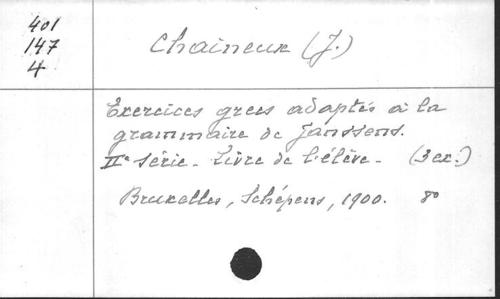 401
147
4
Chaineux (J.)
Exercices grecs adaptés à la
grammaire de Janssens.
IIe série - Livre de l'élève - (3 ex.)
Bruxelles, Schépens, 1900. 8o